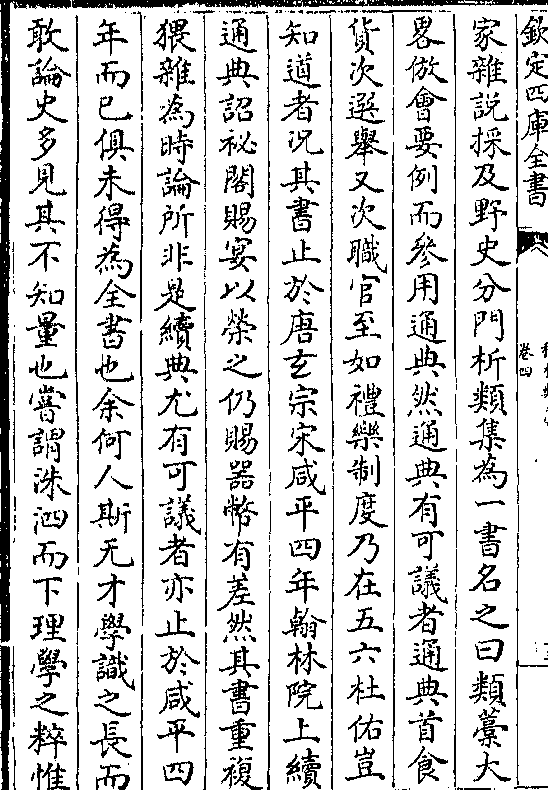 欽定四庫全書
卷四
家雜説採及野史分門析類集為一書名之曰類藳大
畧倣會要例而叅用通典然通典有可議者通典首食
貨次選舉又次職官至如禮樂制度乃在五六杜佑豈
知道者况其書止於唐玄宗宋咸平四年翰林院上續
通典詔祕閣賜宴以榮之仍賜器幣有差然其書重複
猥雜為時論所非是續典尤有可議者亦止於咸平四
年而已俱未得為全書也余何人斯无才學識之長而
敢論史多見其不知量也嘗謂洙泗而下理學之粹惟